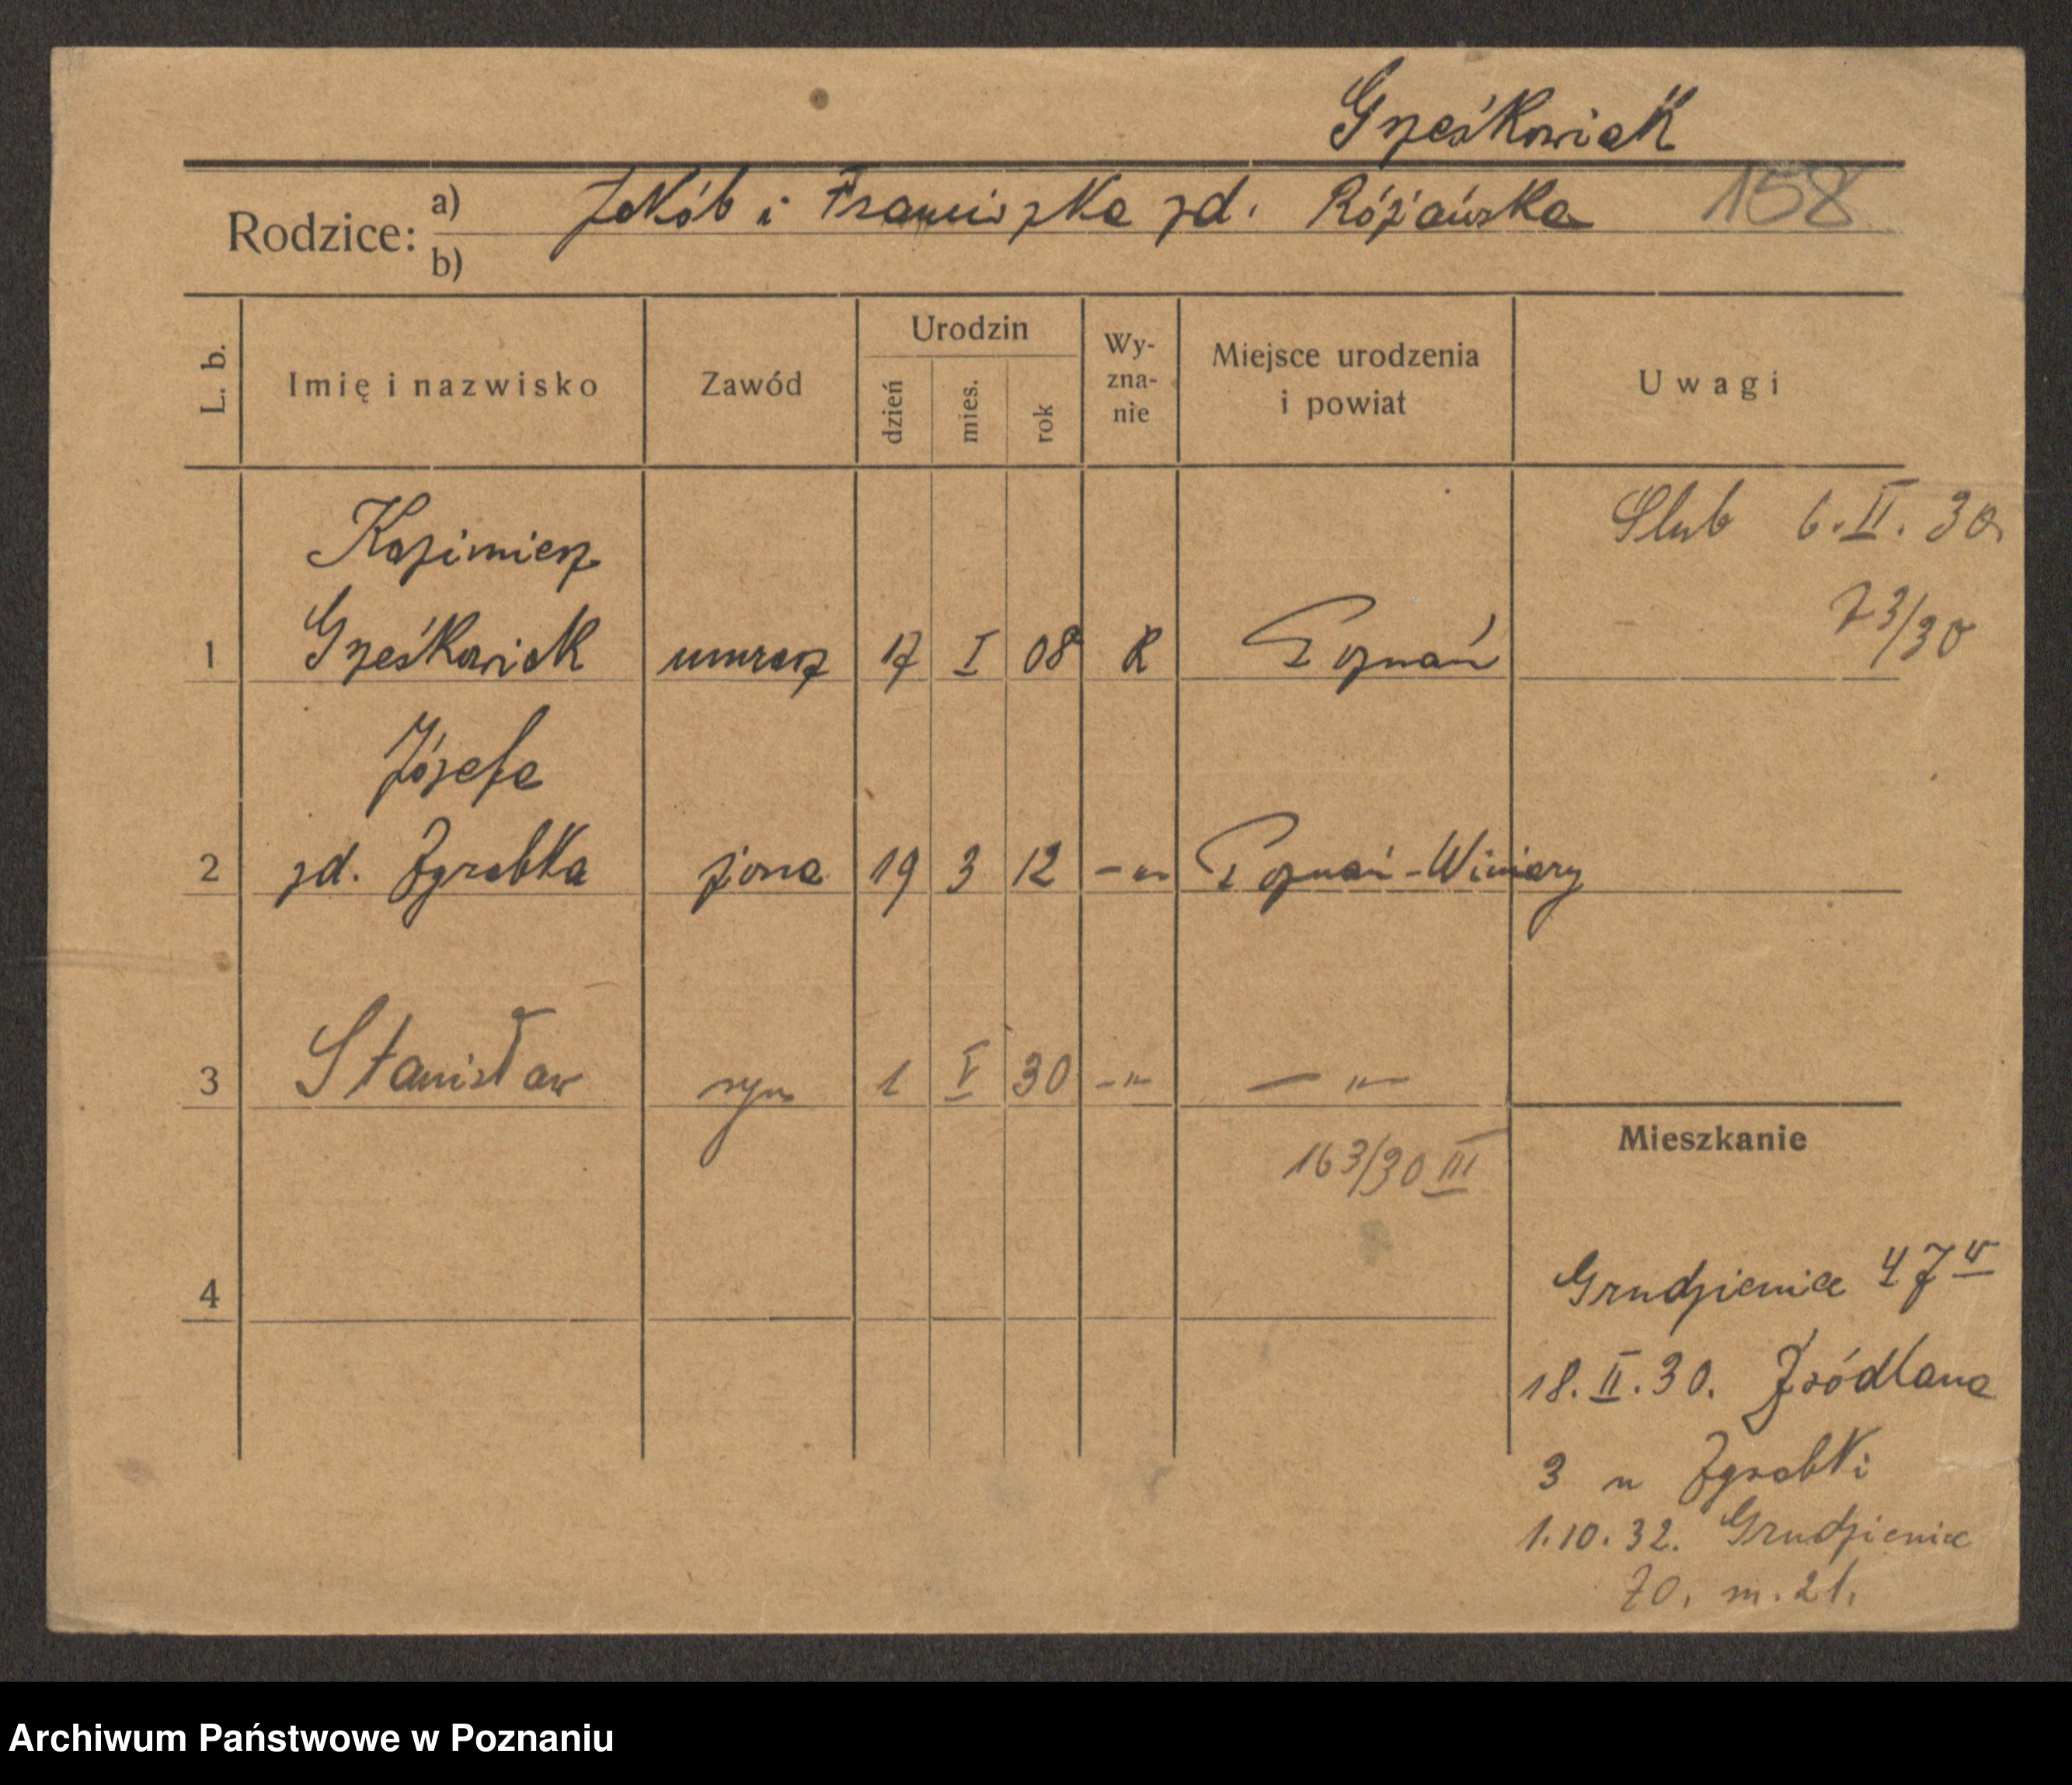 Grześkowiak
Rodzice: a) Jakób i Franciszka zd. Różańska 158
b)
L. b. Imię i nazwisko Zawód Urodzin dzień mies. rok Wy-zna-nie Miejsce urodzenia i powiat Uwagi
Kazimierz Slub 6. II. 30.
73/30
1 Grześkowiak murarz 17 I 08 R Poznań
Józefa
2 zd. Zgrabka żona 19 3 12 -"- Poznań-Winiary
3 Stanisław syn 1 V 30 -"- - "-
163/30 III
4
Mieszkanie
Grudzieniec 47
18. II. 30. Źródlana
3 u Zgrabki
1.10.32. Grudzieniec
70. m. 21.
Archiwum Państwowe w Poznaniu